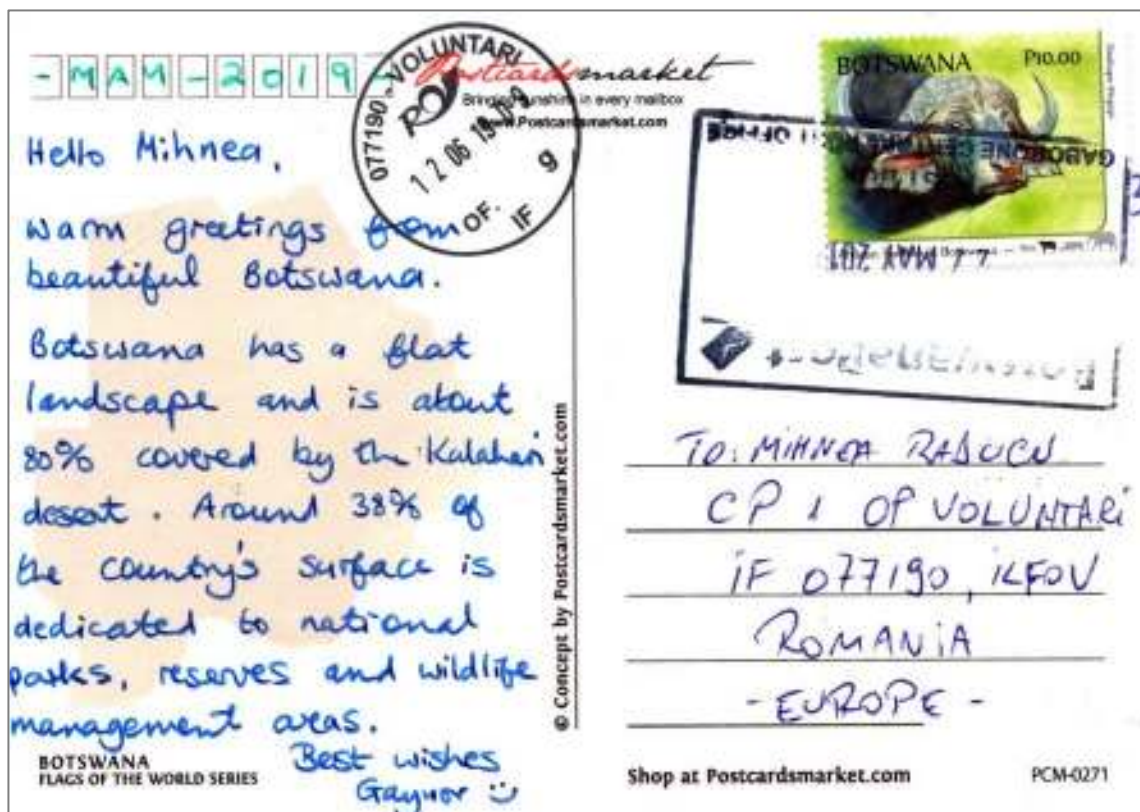 -MAM-2019-
Postcardsmarket
Bringing sunshine in every mailbox
www.Postcardsmarket.com
077190 - VOLUNTARI
12 06 19
OF. IF
g
BOTSWANA P10.00
GABORONE
MAY 201
BotswanaPost
Hello Mihnea,
Warm greetings from
beautiful Botswana.
Botswana has a flat
landscape and is about
80% covered by the Kalahari
desert. Around 38% of
the country's surface is
dedicated to national
parks, reserves and wildlife
management areas.
Best wishes
Gaynor
BOTSWANA
FLAGS OF THE WORLD SERIES
© Concept by Postcardsmarket.com
TO: MIHNEA RADUCU
CP 1 OP VOLUNTARI
IF 077190, ILFOV
ROMANIA
- EUROPE -
Shop at Postcardsmarket.com
PCM-0271